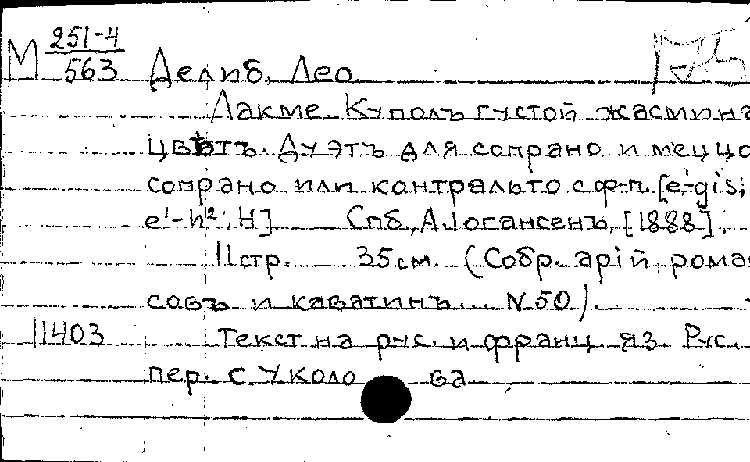 М 251-4
563 Делиб, Лео
Лакме. Куполъ густой жасмина
цвѣтъ. Дуэтъ для сопрано и меццо
сопрано или контральто с ф-п. [e'-gis;
e'-h²; H] Спб, А. Іогансенъ, [1888].
11 стр. 35 см. (Собр. арій, рома
совъ и каватинъ... N 50).
11403 Текст на рус. и франц. яз. Рус.
пер. С. Уколо ва